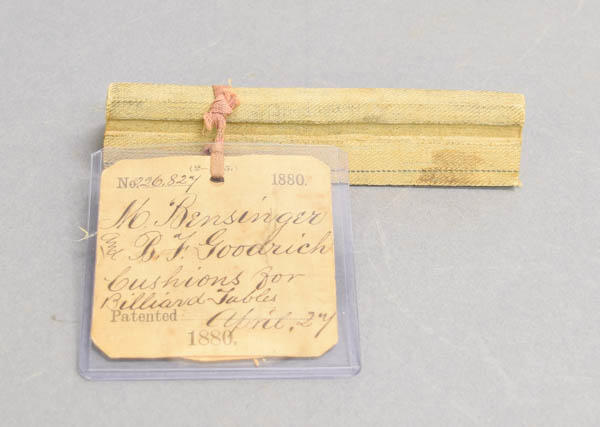 No. 226,827 1880.
M. Bensinger
and B. F. Goodrich
Cushions for
Billiard Tables
Patented April, 27
1880.